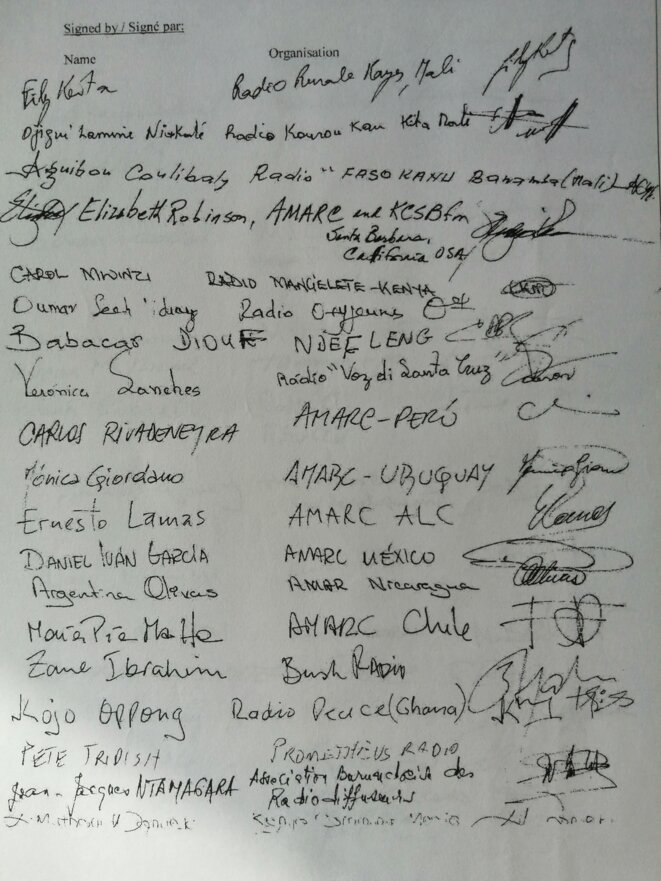 Signed by / Signé par:
Name Organisation
Fily Keïta Radio Rurale Kayes, Mali
Lamine Radio Kourou Kan Kita Mali
Coulibaly Radio "FASO KANU Banamba (Mali)
Elizabeth Robinson, AMARC and KCSB fm
Santa Barbara,
California USA
CAROL MWINZI RADIO MANGELETE-KENYA
Oumar Seck Radio
Babacar DIOUF NDEF LENG
Verónica Sanches Rádio "Voz di Santa Cruz"
CARLOS RIVADENEYRA AMARC-PERÚ
Mónica Giordano AMARC-URUGUAY
Ernesto Lamas AMARC ALC
DANIEL IVÁN GARCÍA AMARC MÉXICO
Argentina Olivas AMAR Nicaragua
María Pía Matta AMARC Chile
Zane Ibrahim Bush RADIO
Kojo OPPONG Radio Peace (Ghana)
PETE TRIDISH PROMETHEUS RADIO
Jean-Jacques NTAMAGARA Association Burundaise des
Radiodiffuseurs